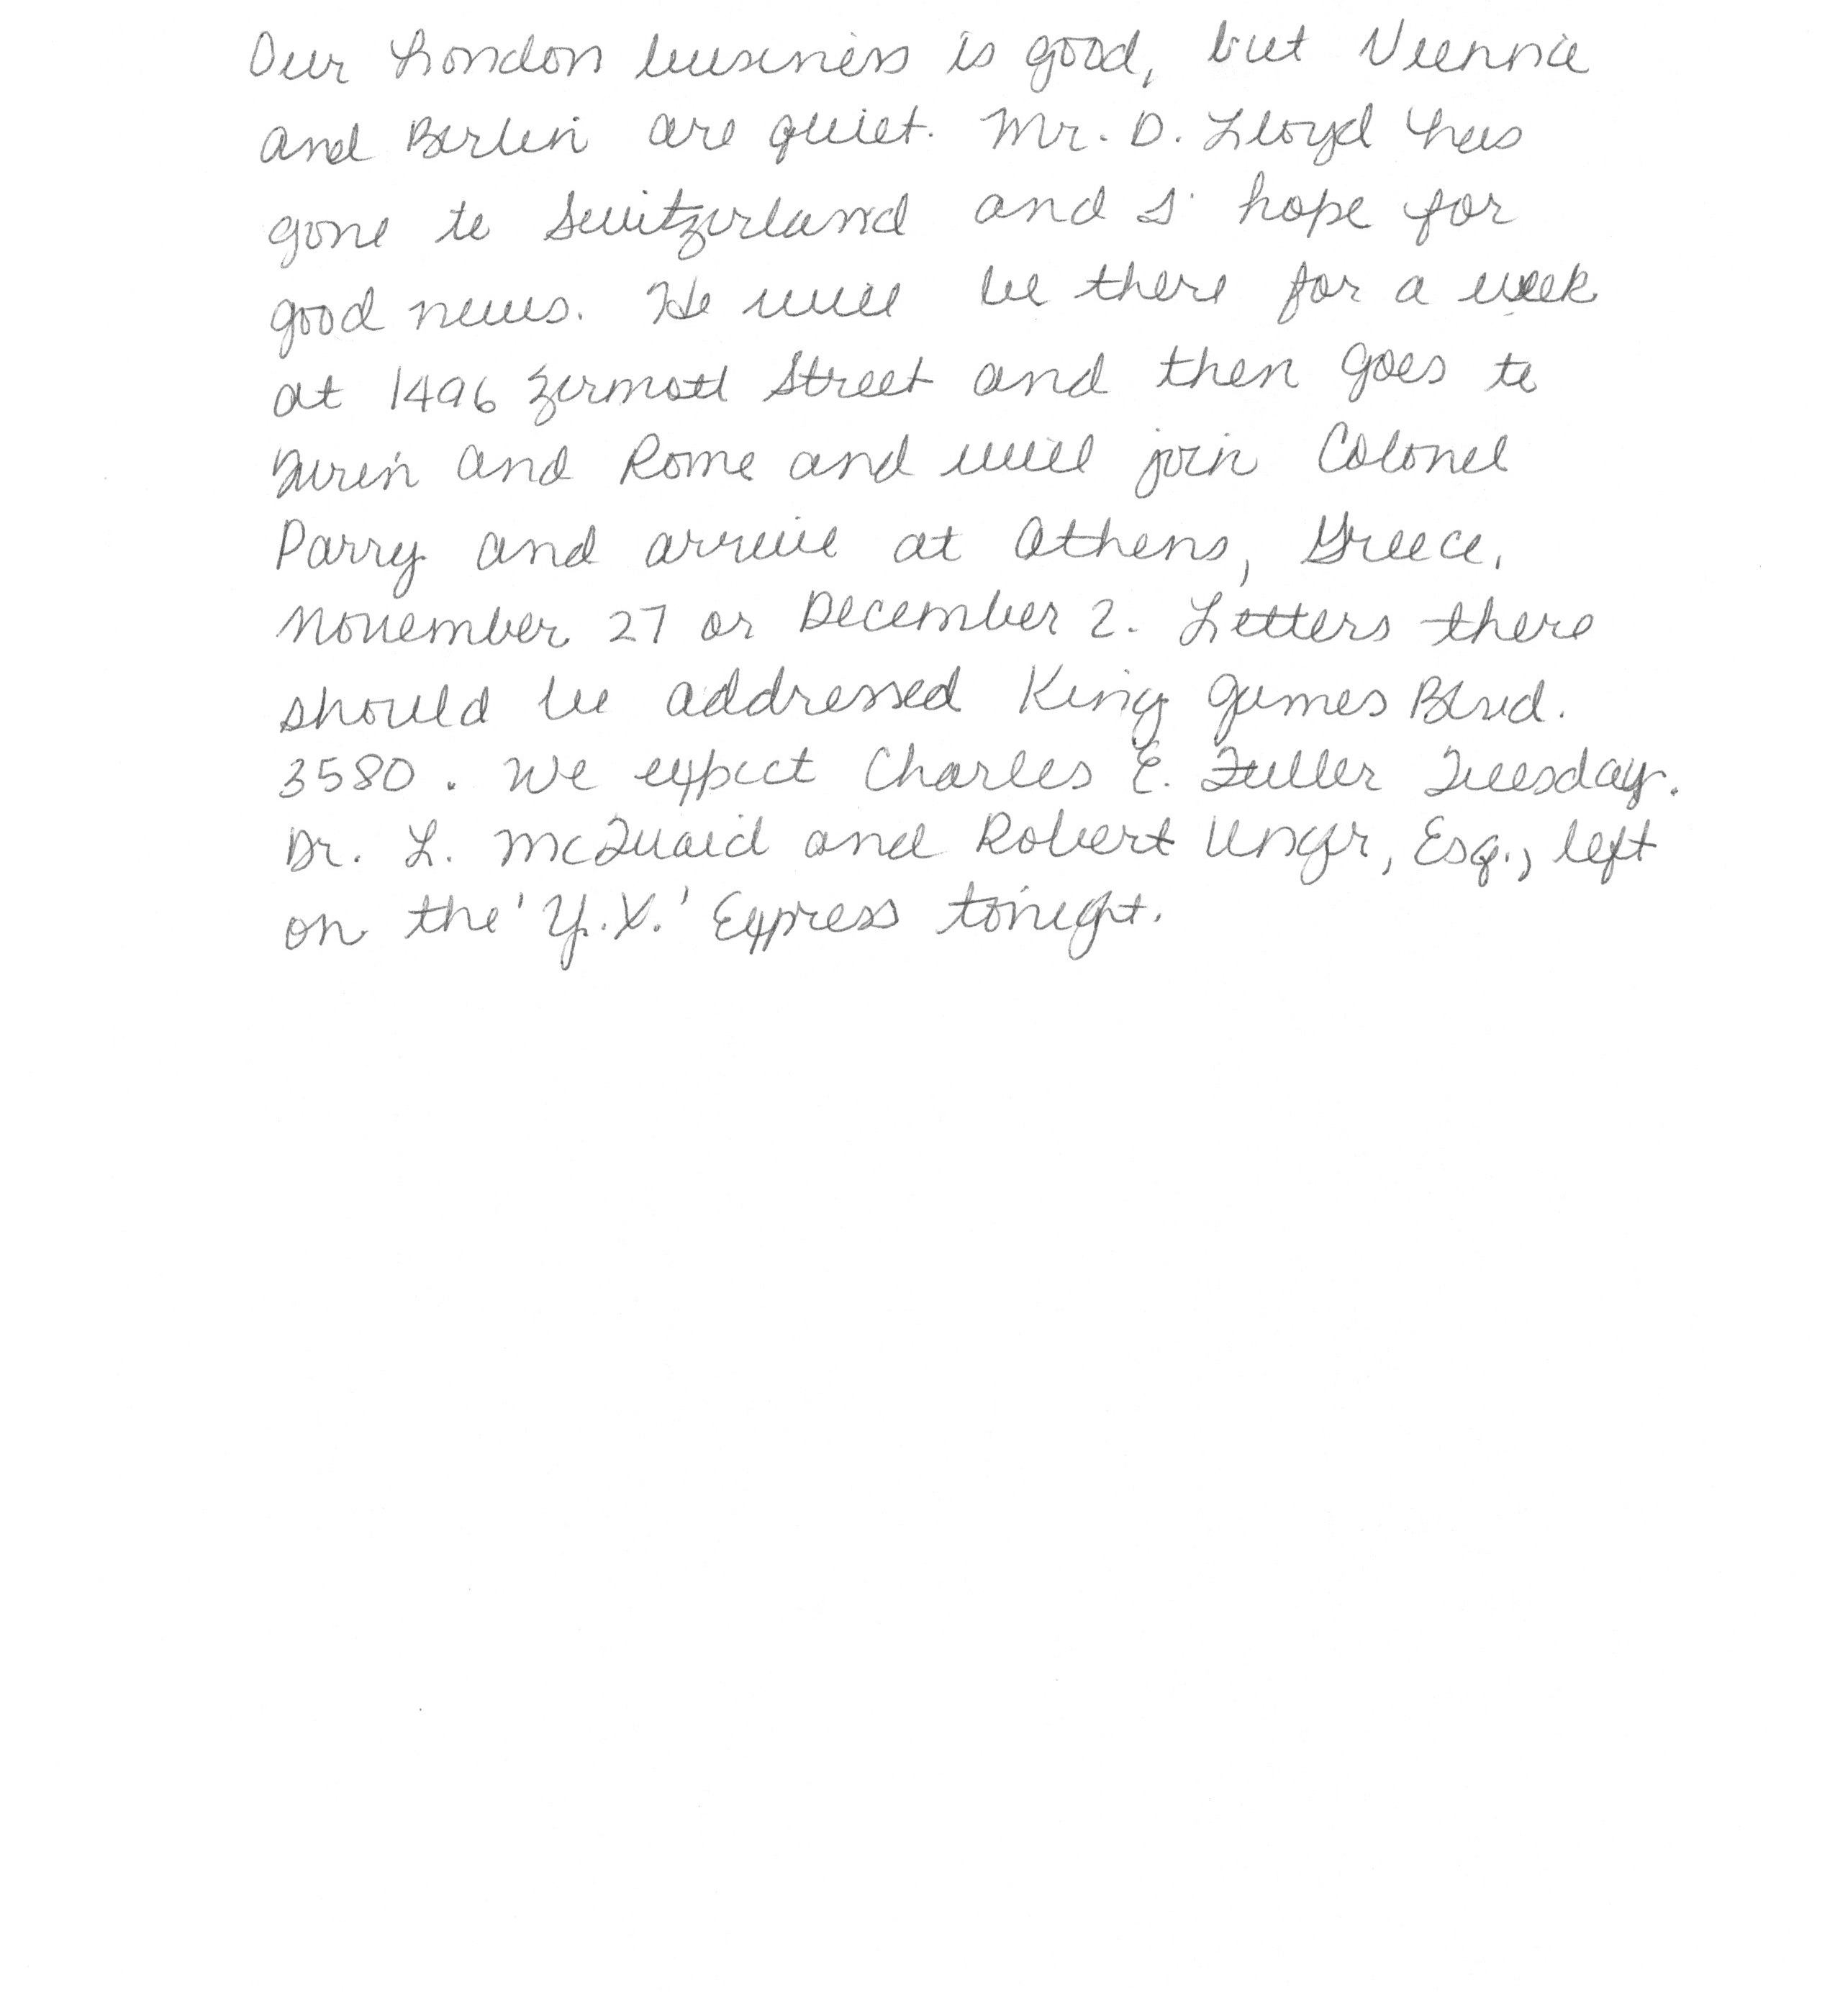 Our London business is good, but Vienna
and Berlin are quiet. Mr. D. Lloyd has
gone to Switzerland and I hope for
good news. He will be there for a week
at 1496 Zermott Street and then goes to
Turin and Rome and will join Colonel
Parry and arrive at Athens, Greece,
November 27 or December 2. Letters there
should be addressed King James Blvd.
3580. We expect Charles E. Fuller Tuesday.
Dr. L. McQuaid and Robert Unger, Esq., left
on the 'Y.X.' Express tonight.